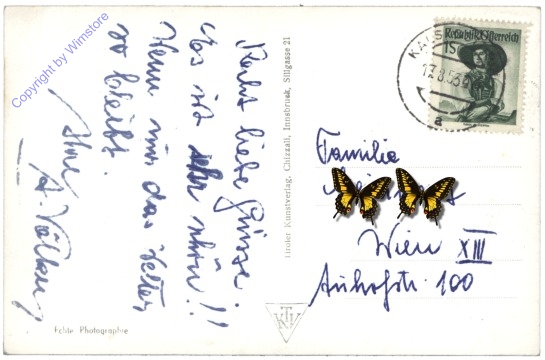 Copyright by Wimstore
Recht liebe Grüsse.
Es ist sehr schön!!
Wenn nur das Wetter
so bleibt.
Ihre
A. Völker
Echte Photographie
Tiroler Kunstverlag, Chizzali, Innsbruck, Sillgasse 21
Republik Österreich
Familie
Wien XIII
Auhofstr. 100